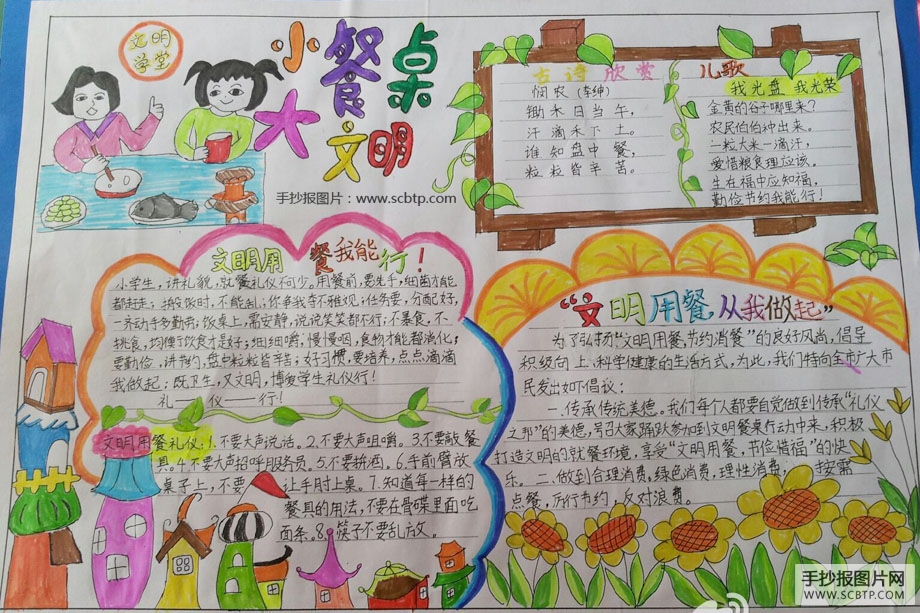 文明
学堂
小餐桌
大文明
手抄报图片：www.scbtp.com
古诗欣赏
悯农（李绅）
锄禾日当午，
汗滴禾下土。
谁知盘中餐，
粒粒皆辛苦。
儿歌
我光盘 我光荣
金黄的谷子哪里来？
农民伯伯种出来。
一粒大米一滴汗，
爱惜粮食理应该。
生在福中应知福，
勤俭节约我能行！
文明用餐我能行！
小学生，讲礼貌，就餐礼仪不可少。用餐前，要洗手，细菌才能
都赶走；排饭时，不能乱；你争我夺不雅观；任务要，分配好，
一齐动手多勤劳；饭桌上，需安静，说说笑笑都不行；不暴食，不
挑食，均衡饮食才是好；细细嚼，慢慢咽，食物才能都消化；
要勤俭，讲节约，盘中粒粒皆辛苦；好习惯，要培养，点点滴滴
我做起；既卫生，又文明，博爱学生礼仪行！
礼——仪——行！
文明用餐礼仪：1.不要大声说话。2.不要大声咀嚼。3.不要敲餐
具。4.不要大声招呼服务员。5.不要拼酒。6.手前臂放
桌子上，不要让手肘上桌。7.知道每一样的
餐具的用法，不要在骨碟里面吃
面条。8.筷子不要乱放。
“文明用餐 从我做起”
为了弘扬“文明用餐，节约消餐”的良好风尚，倡导
积极向上、科学健康的生活方式，为此，我们特向全市广大市
民发出如下倡议：
一.传承传统美德。我们每个人都要自觉做到传承“礼仪
之邦”的美德，号召大家踊跃参加到文明餐桌行动中来，积极
打造文明的就餐环境，享受“文明用餐，节俭惜福”的快
乐。二.做到合理消费，绿色消费，理性消费；按需
点餐，厉行节约，反对浪费。
手抄报图片网
WWW.SCBTP.COM